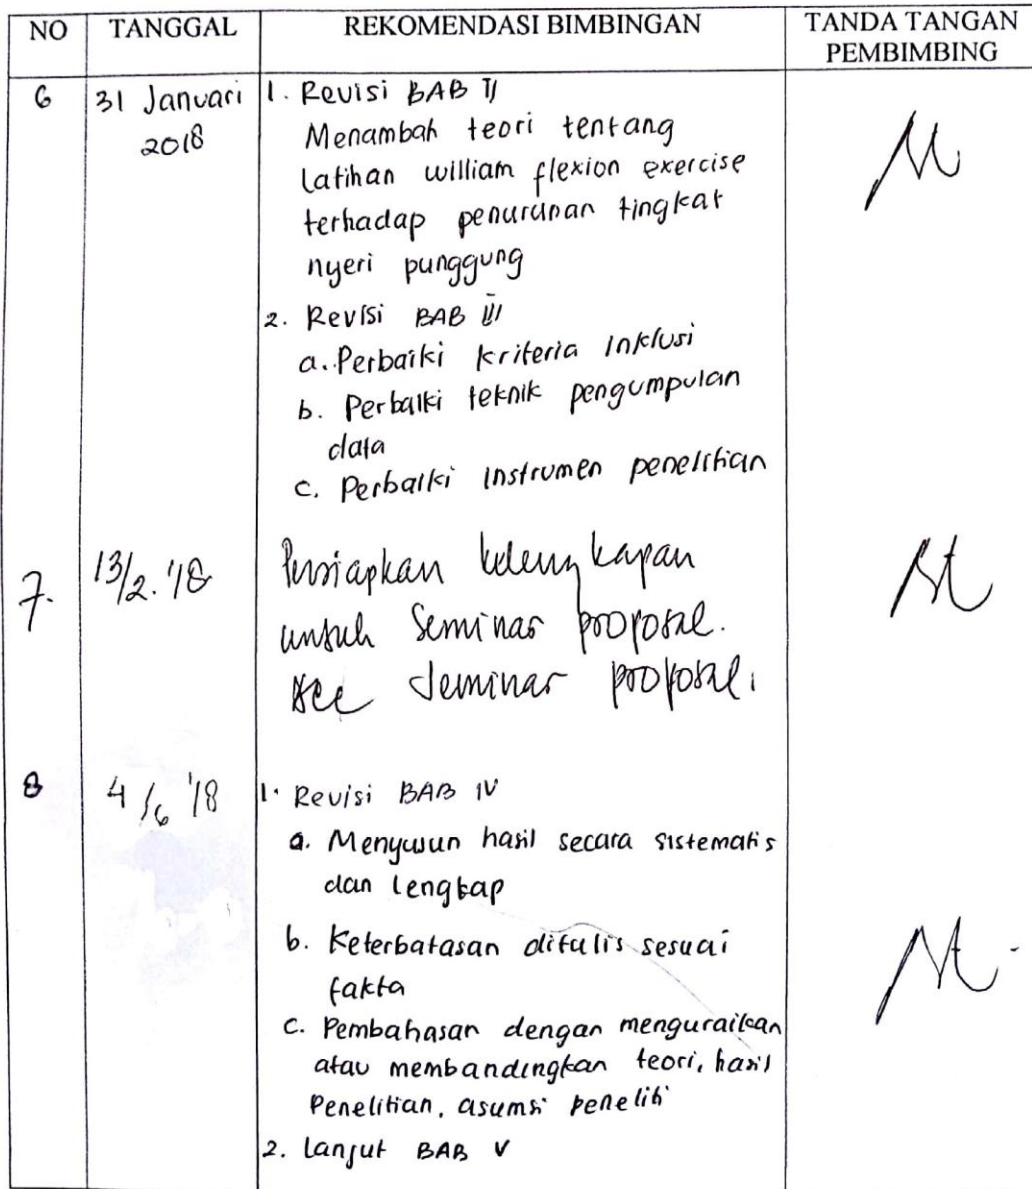 NO TANGGAL REKOMENDASI BIMBINGAN TANDA TANGAN PEMBIMBING
6 31 Januari 2018
1. Revisi BAB II
Menambah teori tentang
Latihan william flexion exercise
terhadap penurunan tingkat
nyeri punggung
2. Revisi BAB III
a. Perbaiki kriteria inklusi
b. Perbaiki teknik pengumpulan
data
c. Perbaiki instrumen penelitian
7. 13/2. '18
Persiapkan kelengkapan
untuk Seminar proposal.
Acc Seminar proposal.
8 4/6 '18
1. Revisi BAB IV
a. Menyusun hasil secara sistematis
dan lengkap
b. Keterbatasan ditulis sesuai
fakta
c. Pembahasan dengan menguraikan
atau membandingkan teori, hasil
Penelitian, asumsi peneliti
2. Lanjut BAB V